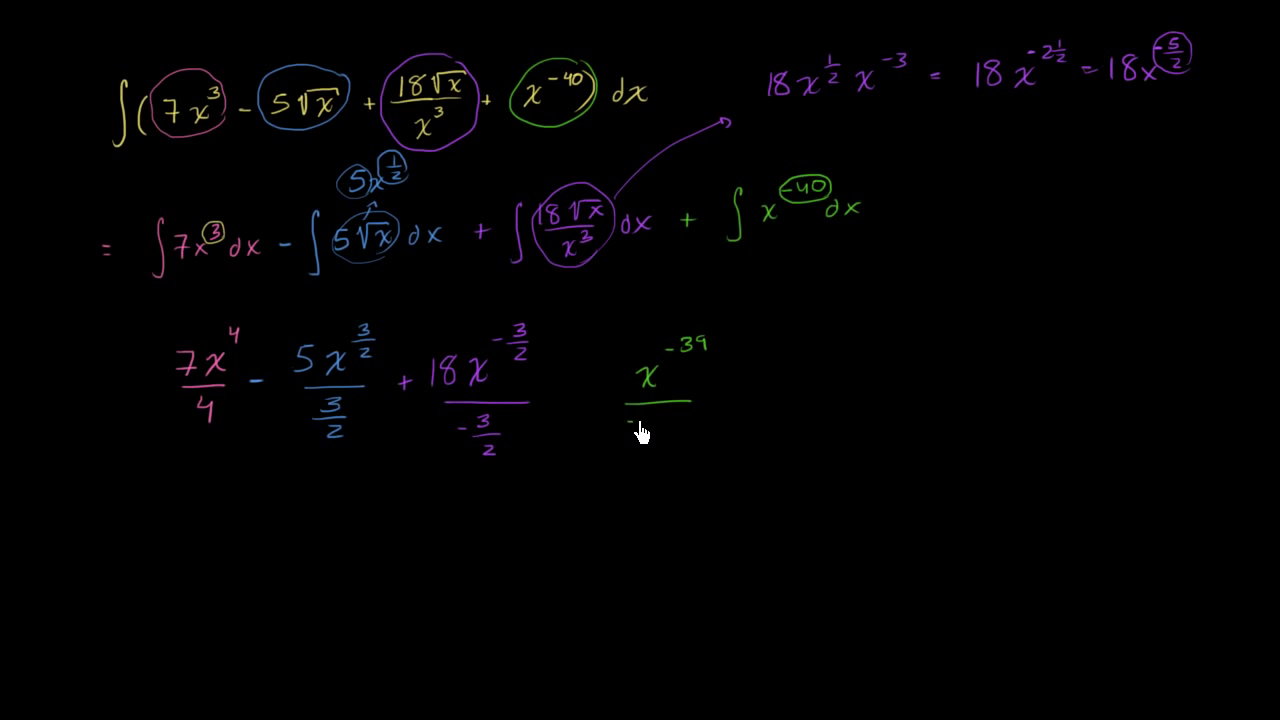 ∫(7x³ - 5√x + 18√x/x³ + x⁻⁴⁰) dx
18x^(1/2) x⁻³ = 18x^(-2 1/2) = 18x^(-5/2)
5x^(1/2)
= ∫7x³dx - ∫5√x dx + ∫18√x/x³ dx + ∫x⁻⁴⁰dx
7x⁴/4 - 5x^(3/2)/(3/2) + 18x^(-3/2)/(-3/2) x⁻³⁹/-